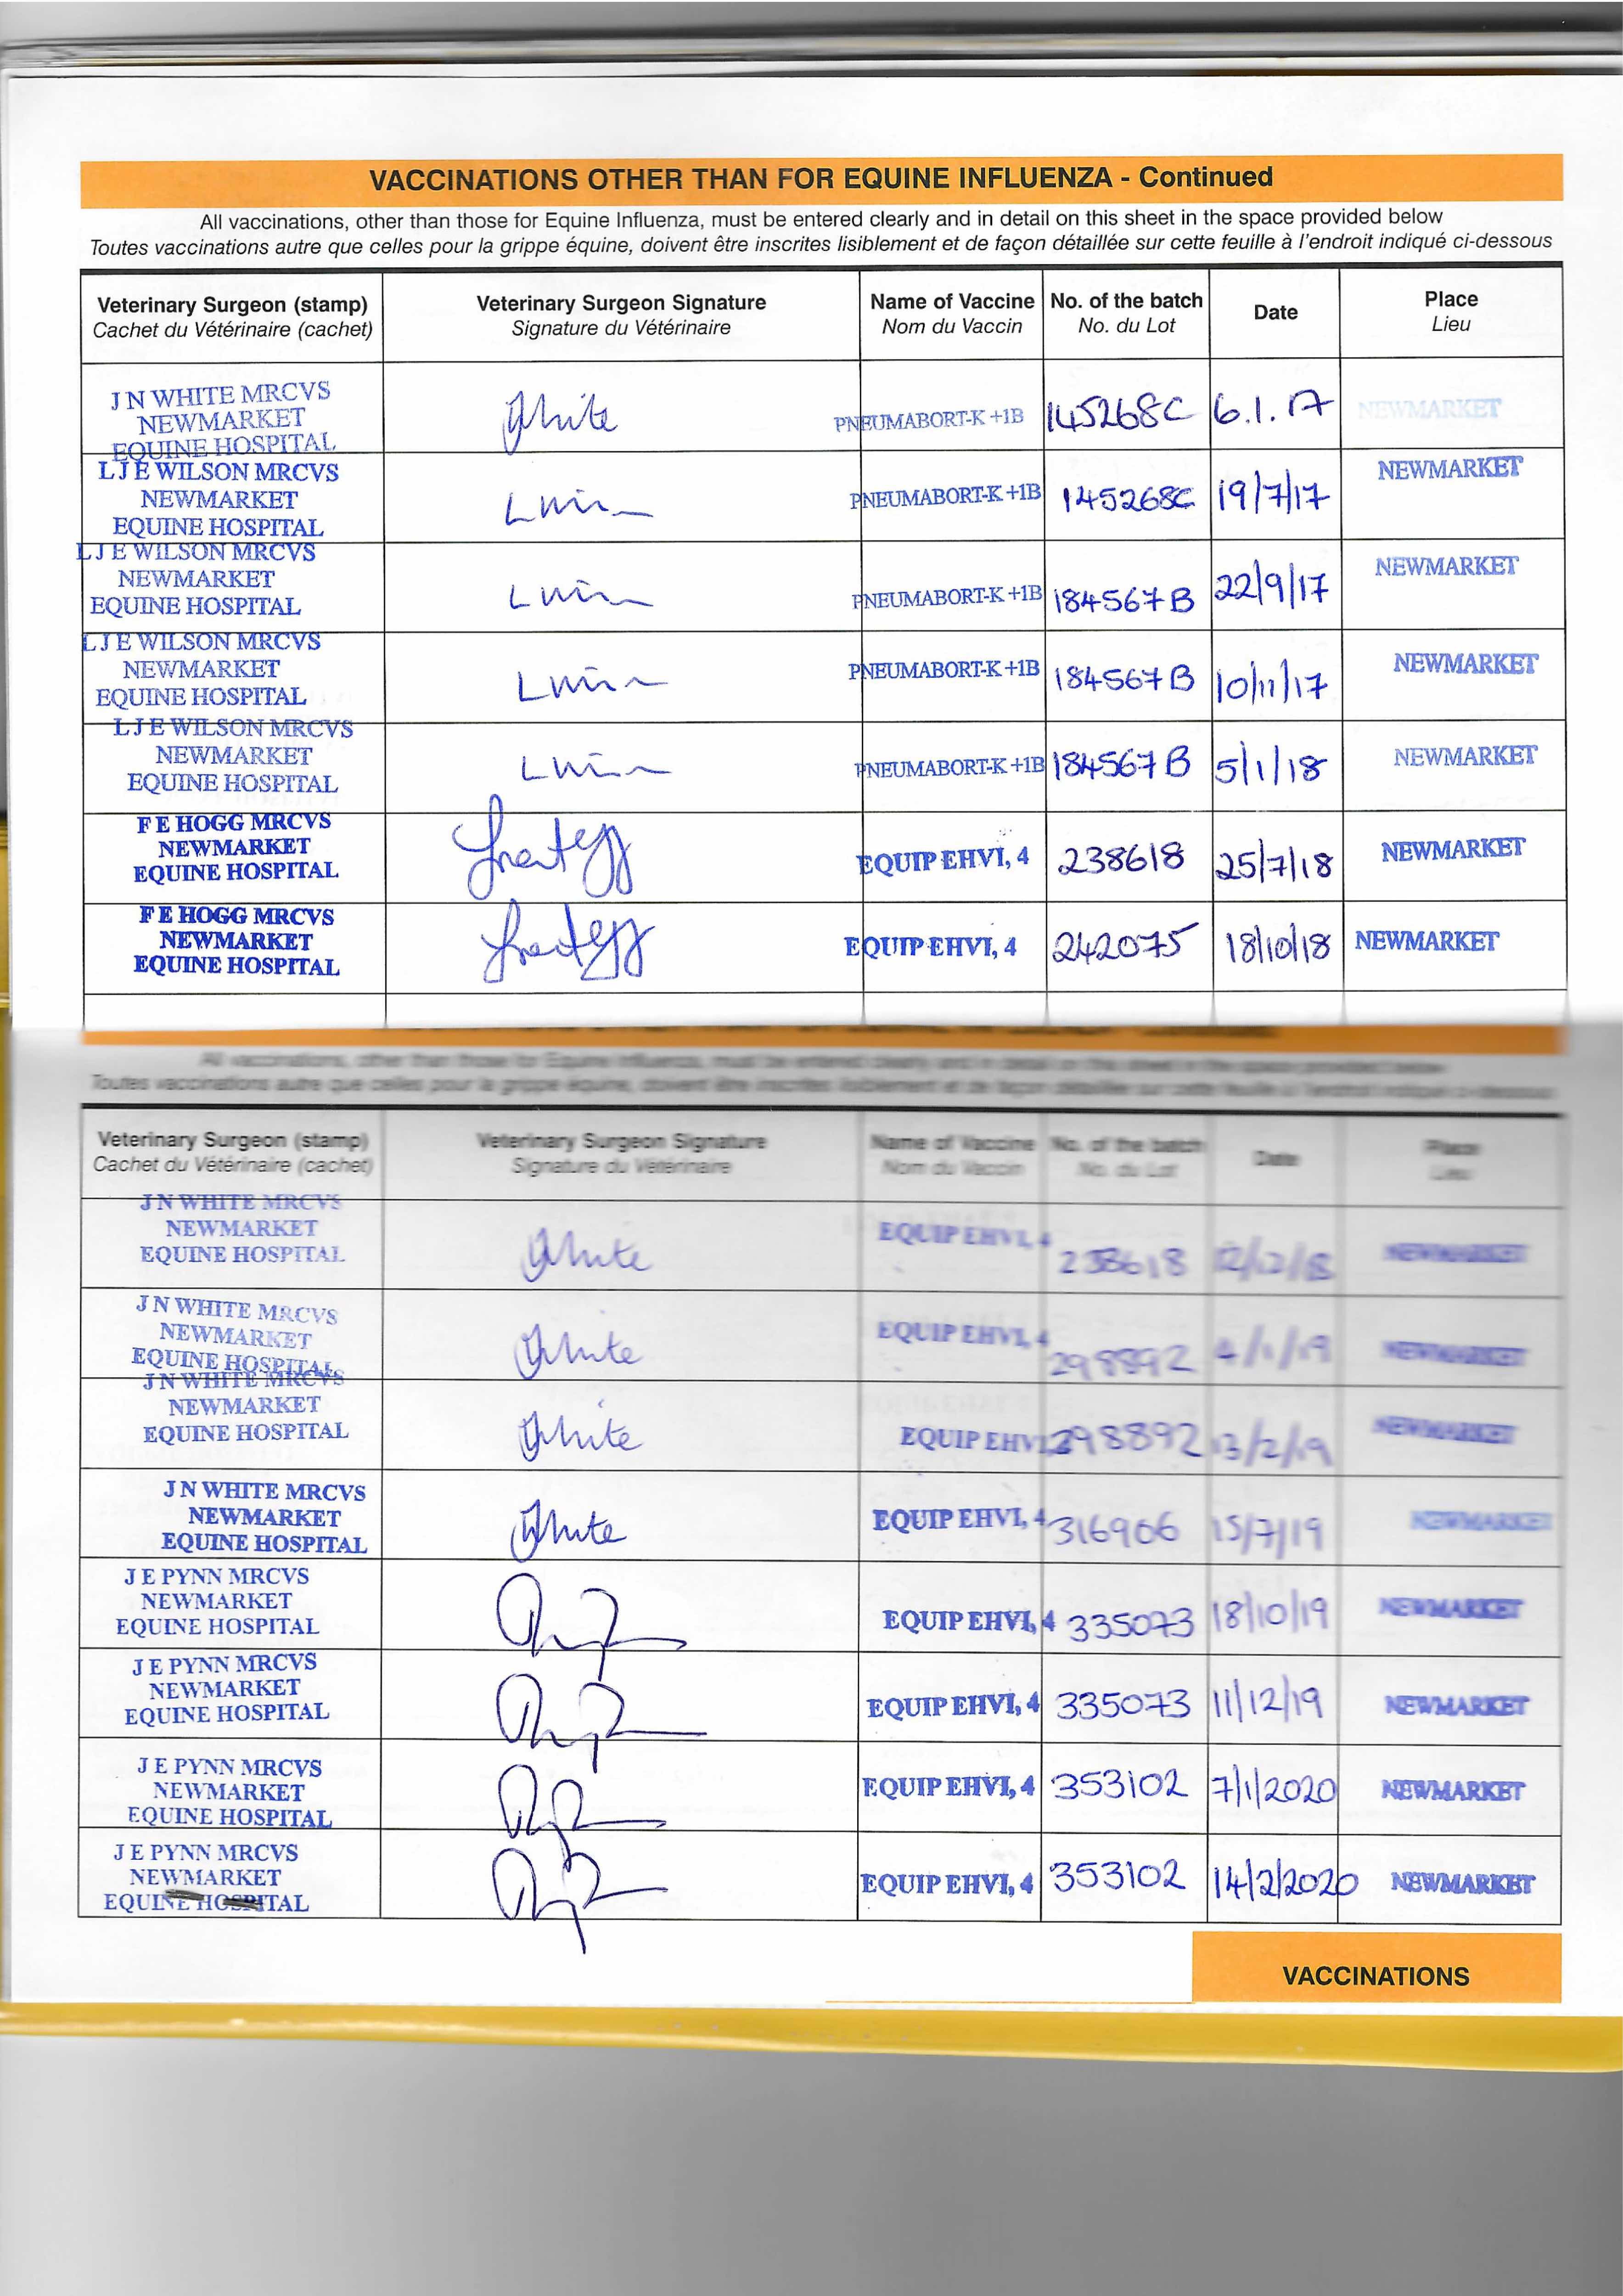 VACCINATIONS OTHER THAN FOR EQUINE INFLUENZA - Continued
All vaccinations, other than those for Equine Influenza, must be entered clearly and in detail on this sheet in the space provided below
Toutes vaccinations autre que celles pour la grippe équine, doivent être inscrites lisiblement et de façon détaillée sur cette feuille à l'endroit indiqué ci-dessous
Veterinary Surgeon (stamp) Veterinary Surgeon Signature Name of Vaccine No. of the batch Date Place
Cachet du Vétérinaire (cachet) Signature du Vétérinaire Nom du Vaccin No. du Lot Lieu
J N WHITE MRCVS
NEWMARKET White PNEUMABORT-K +1B 145268C 6.1.17 NEWMARKET
EQUINE HOSPITAL
L J E WILSON MRCVS
NEWMARKET PNEUMABORT-K +1B 145268C 19/7/17 NEWMARKET
EQUINE HOSPITAL
L J E WILSON MRCVS
NEWMARKET PNEUMABORT-K +1B 184567B 22/9/17 NEWMARKET
EQUINE HOSPITAL
L J E WILSON MRCVS
NEWMARKET PNEUMABORT-K +1B 184567B 10/11/17 NEWMARKET
EQUINE HOSPITAL
L J E WILSON MRCVS
NEWMARKET PNEUMABORT-K +1B 184567B 5/1/18 NEWMARKET
EQUINE HOSPITAL
F E HOGG MRCVS
NEWMARKET EQUIP EHVI, 4 238618 25/7/18 NEWMARKET
EQUINE HOSPITAL
F E HOGG MRCVS
NEWMARKET EQUIP EHVI, 4 242075 18/10/18 NEWMARKET
EQUINE HOSPITAL
All vaccinations, other than those for Equine Influenza, must be entered clearly and in detail on this sheet in the space provided below
Toutes vaccinations autre que celles pour la grippe équine, doivent être inscrites lisiblement et de façon détaillée sur cette feuille à l'endroit indiqué ci-dessous
Veterinary Surgeon (stamp) Veterinary Surgeon Signature Name of Vaccine No. of the batch Date Place
Cachet du Vétérinaire (cachet) Signature du Vétérinaire Nom du Vaccin No. du Lot Lieu
J N WHITE MRCVS
NEWMARKET White EQUIP EHVI, 4 238618 12/12/18 NEWMARKET
EQUINE HOSPITAL
J N WHITE MRCVS
NEWMARKET White EQUIP EHVI, 4 298892 4/1/19 NEWMARKET
EQUINE HOSPITAL
J N WHITE MRCVS
NEWMARKET White EQUIP EHVI 298892 13/2/19 NEWMARKET
EQUINE HOSPITAL
J N WHITE MRCVS
NEWMARKET White EQUIP EHVI, 4 316906 15/7/19 NEWMARKET
EQUINE HOSPITAL
J E PYNN MRCVS
NEWMARKET EQUIP EHVI, 4 335073 18/10/19 NEWMARKET
EQUINE HOSPITAL
J E PYNN MRCVS
NEWMARKET EQUIP EHVI, 4 335073 11/12/19 NEWMARKET
EQUINE HOSPITAL
J E PYNN MRCVS
NEWMARKET EQUIP EHVI, 4 353102 7/1/2020 NEWMARKET
EQUINE HOSPITAL
J E PYNN MRCVS
NEWMARKET EQUIP EHVI, 4 353102 14/2/2020 NEWMARKET
EQUINE HOSPITAL
VACCINATIONS